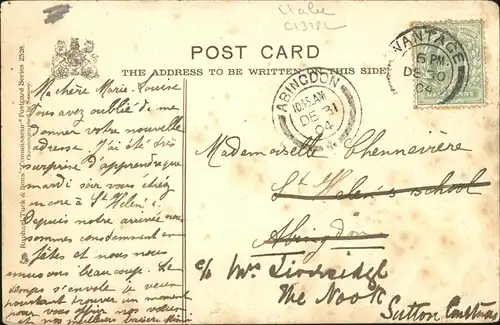 Claire
POST CARD
THE ADDRESS TO BE WRITTEN ON THIS SIDE
Raphael Tuck & Sons' "Connoisseur" Postcard Series 2538.
WANTAGE
6 PM
DE 30
04
ABINGDON
10.45 AM
DE 31
04
Ma chère Marie Louise
Vous avez oublié de me
donner votre nouvelle
adresse. J'ai été très
surprise d'apprendre que
mardi soir vous étiez
encore à St Helen's.
Depuis notre arrivée nous
sommes constamment en
fêtes et nous nous
amusons beaucoup. Le
temps s'envole il a
pourtant trouver un moment
pour vous offrir nos vœux
et nos meilleurs baisers Mimi
Mademoiselle Chennevière
St Helen's school
Abingdon
c/o Mrs
The Nook
Sutton Courtenay